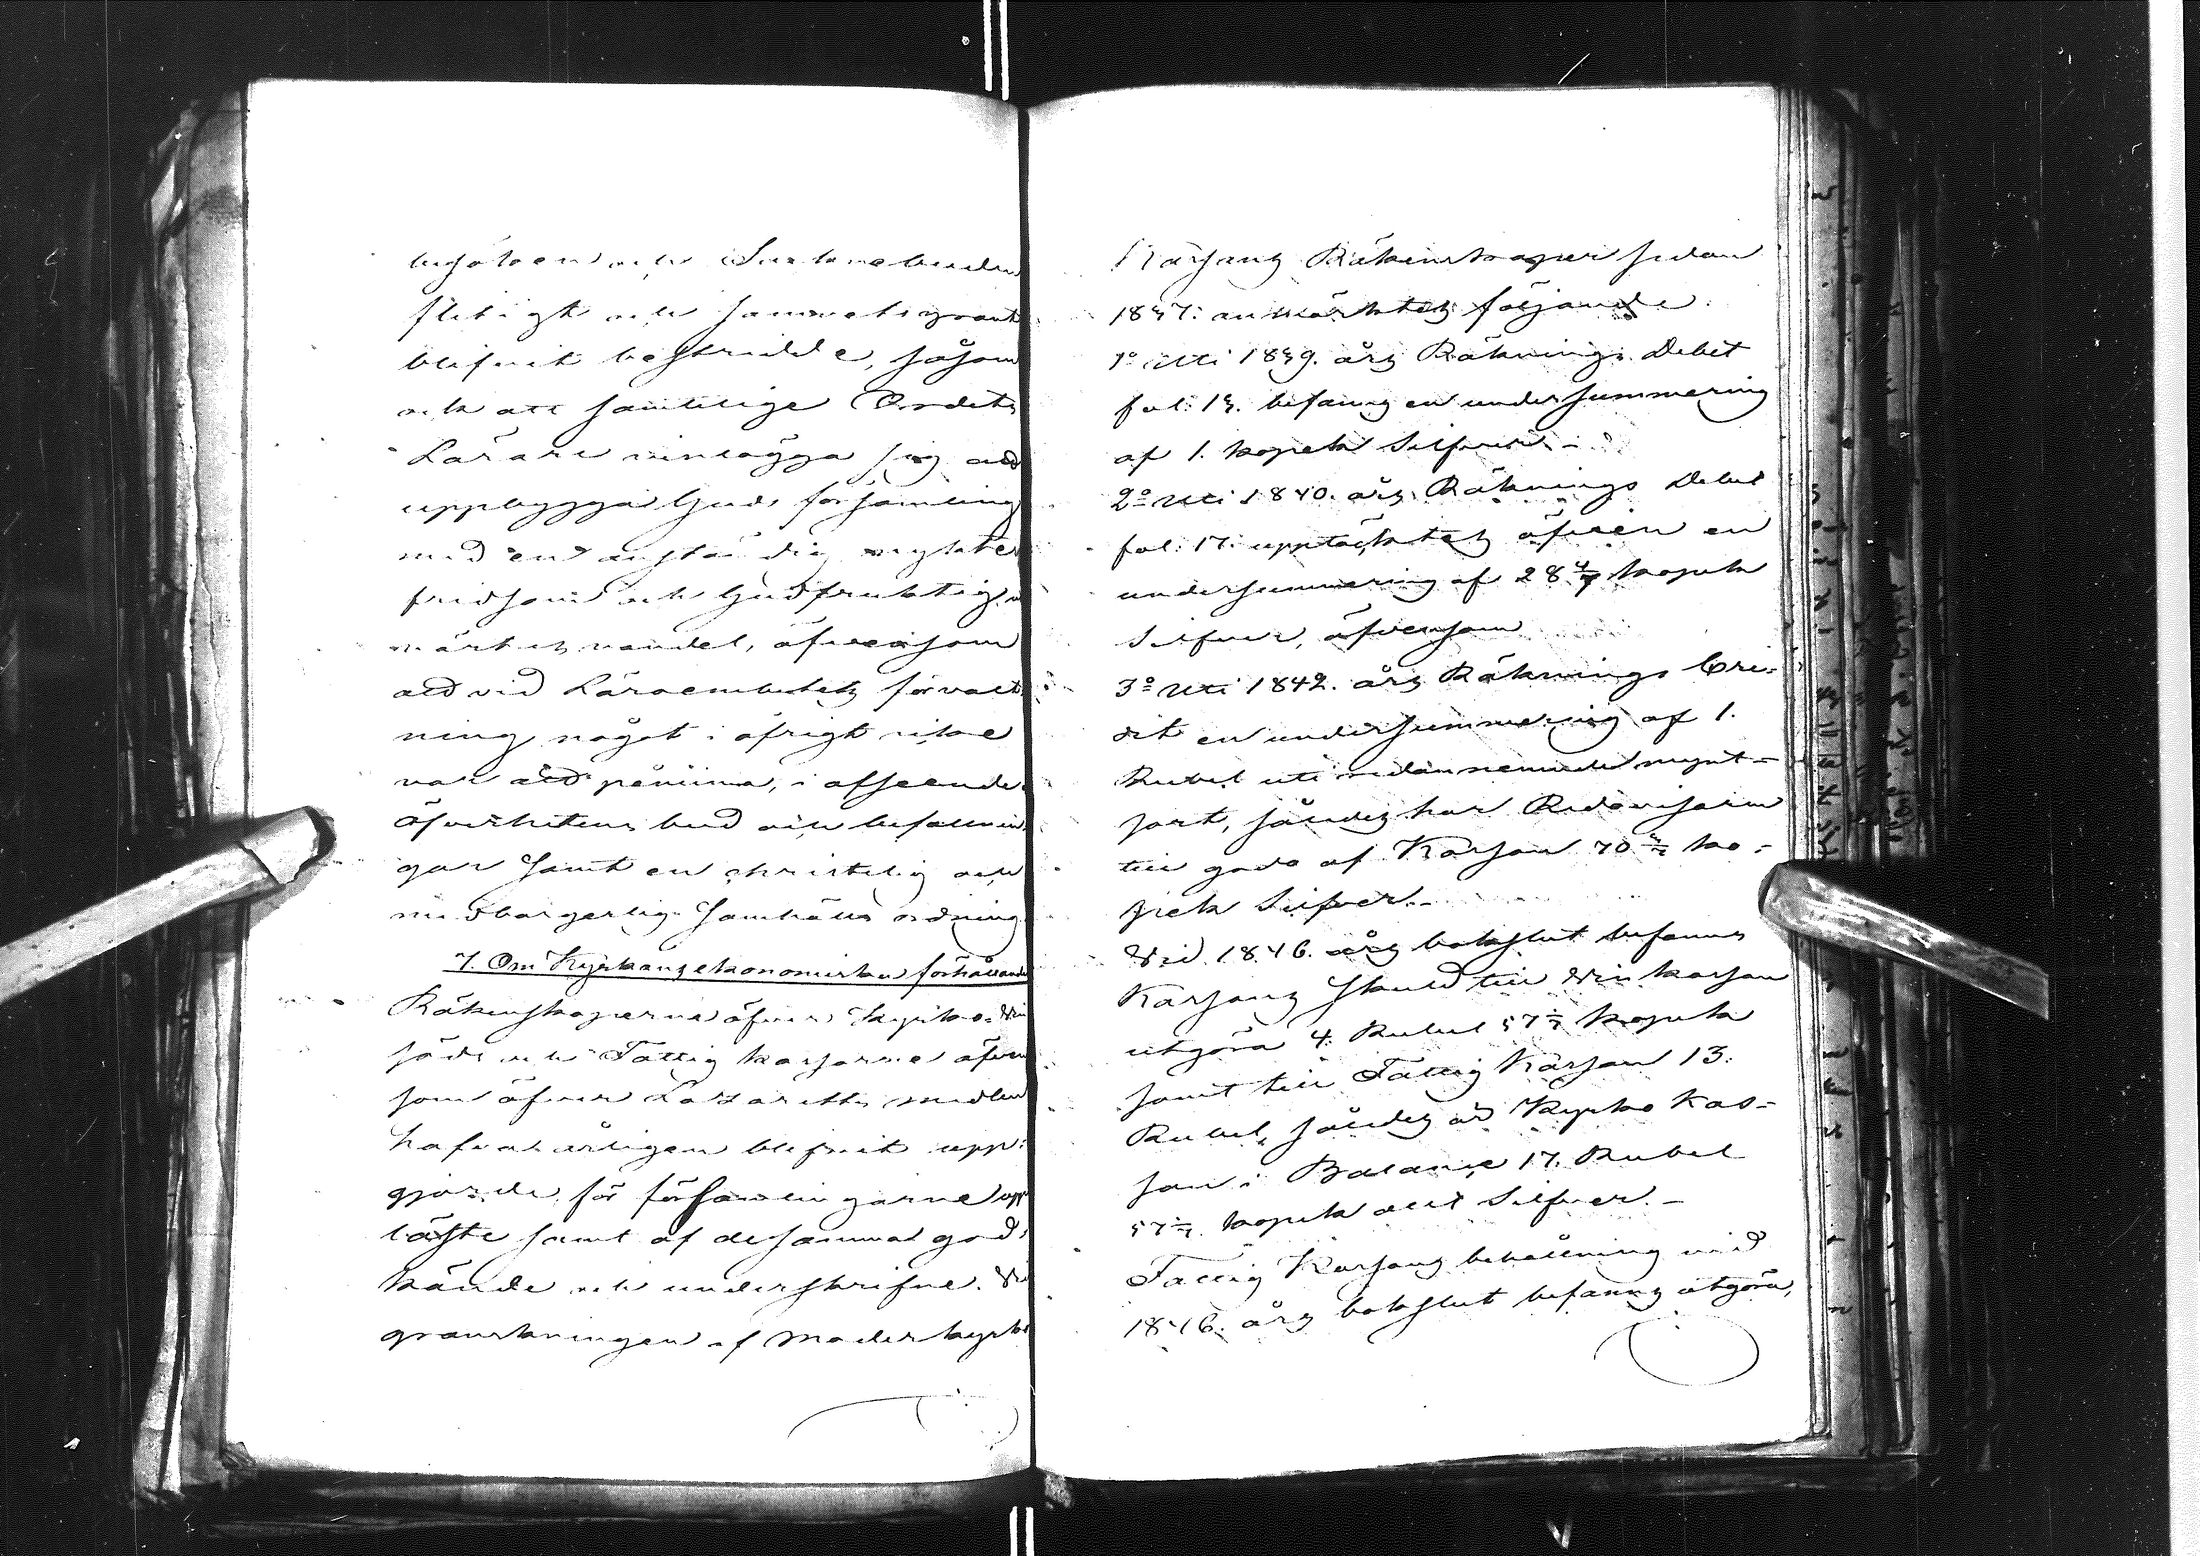 besöken och Sockne buden
flitigt och samvetsgrant
blifvit bestridde, såsom
ock att samtelige Ordets
Lärare vinlägga sig att
uppbygga Guds församling
med en anständig nykter
fridsam och Gudfruktig
märket vandel, äfvensom
att vid Läroembetets förvalt
ning något i öfrigt icke
var att påminna, i afseende
öfverhetens bud och befallnin
gar samt en christelig och
medborgerlig Samhälls ordning
7. Om Kyrkans ekonomiska förhållande
Räkenskaperne öfver Kyrko- Vin
säds och Fattig kassorne äfven
som öfver Lazaretts medlen
hafva årligen blifvit upp
gjorde, för församlingarne upp
läste samt af desamma god
kände och underskrifne. Vid
granskningen af Moderkyrko
Kassans Räkenskaper sedan
1837: anmärktes följande.
1º Uti 1839. års Räknings Debet
fol: 13. befanns en undersummering
af 1. kopek Silfver.-
2º Uti 1840. års Räknings Debet
fol: 17: upptäcktes äfven en
undersummering af 28 4/7 kopek
Silfver, äfvensom
3º Uti 1842. års Räknings Cre-
dit en undersummering af 1.
Rubel uti redan nemnde mynt-
sort, således har Redovisaren
till godo af Kassan 70 3/7 ko-
pek Silfver.
Vid 1846. års bokslut befanns
Kassans skuld till Vin kassan
utgöra 4. Rubel 57 1/7 kopek
samt till Fattig Kassan 13.
Rubel, således är Kyrko Kas-
san i Balance 17. Rubel
57 1/7. kopek allt Silfver.-
Fattig Kassans behållning vid
1846. års bokslut befanns utgöra,